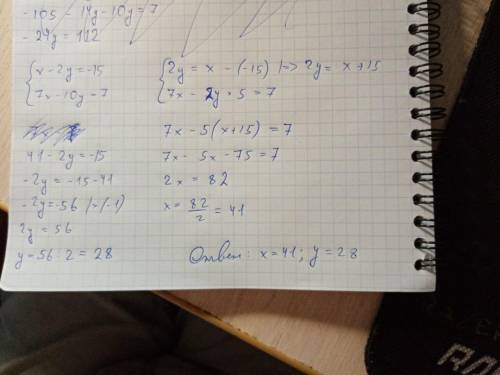 -105 - 14y - 10y = 7
-24y = 112
{ x - 2y = -15
7x - 10y = 7
{ 2y = x - (-15) |=> 2y = x + 15
7x - 2y · 5 = 7
41 - 2y = -15
-2y = -15 - 41
-2y = -56 |×(-1)
2y = 56
y = 56 : 2 = 28
7x - 5(x + 15) = 7
7x - 5x - 75 = 7
2x = 82
x = 82/2 = 41
Ответ: x = 41; y = 28